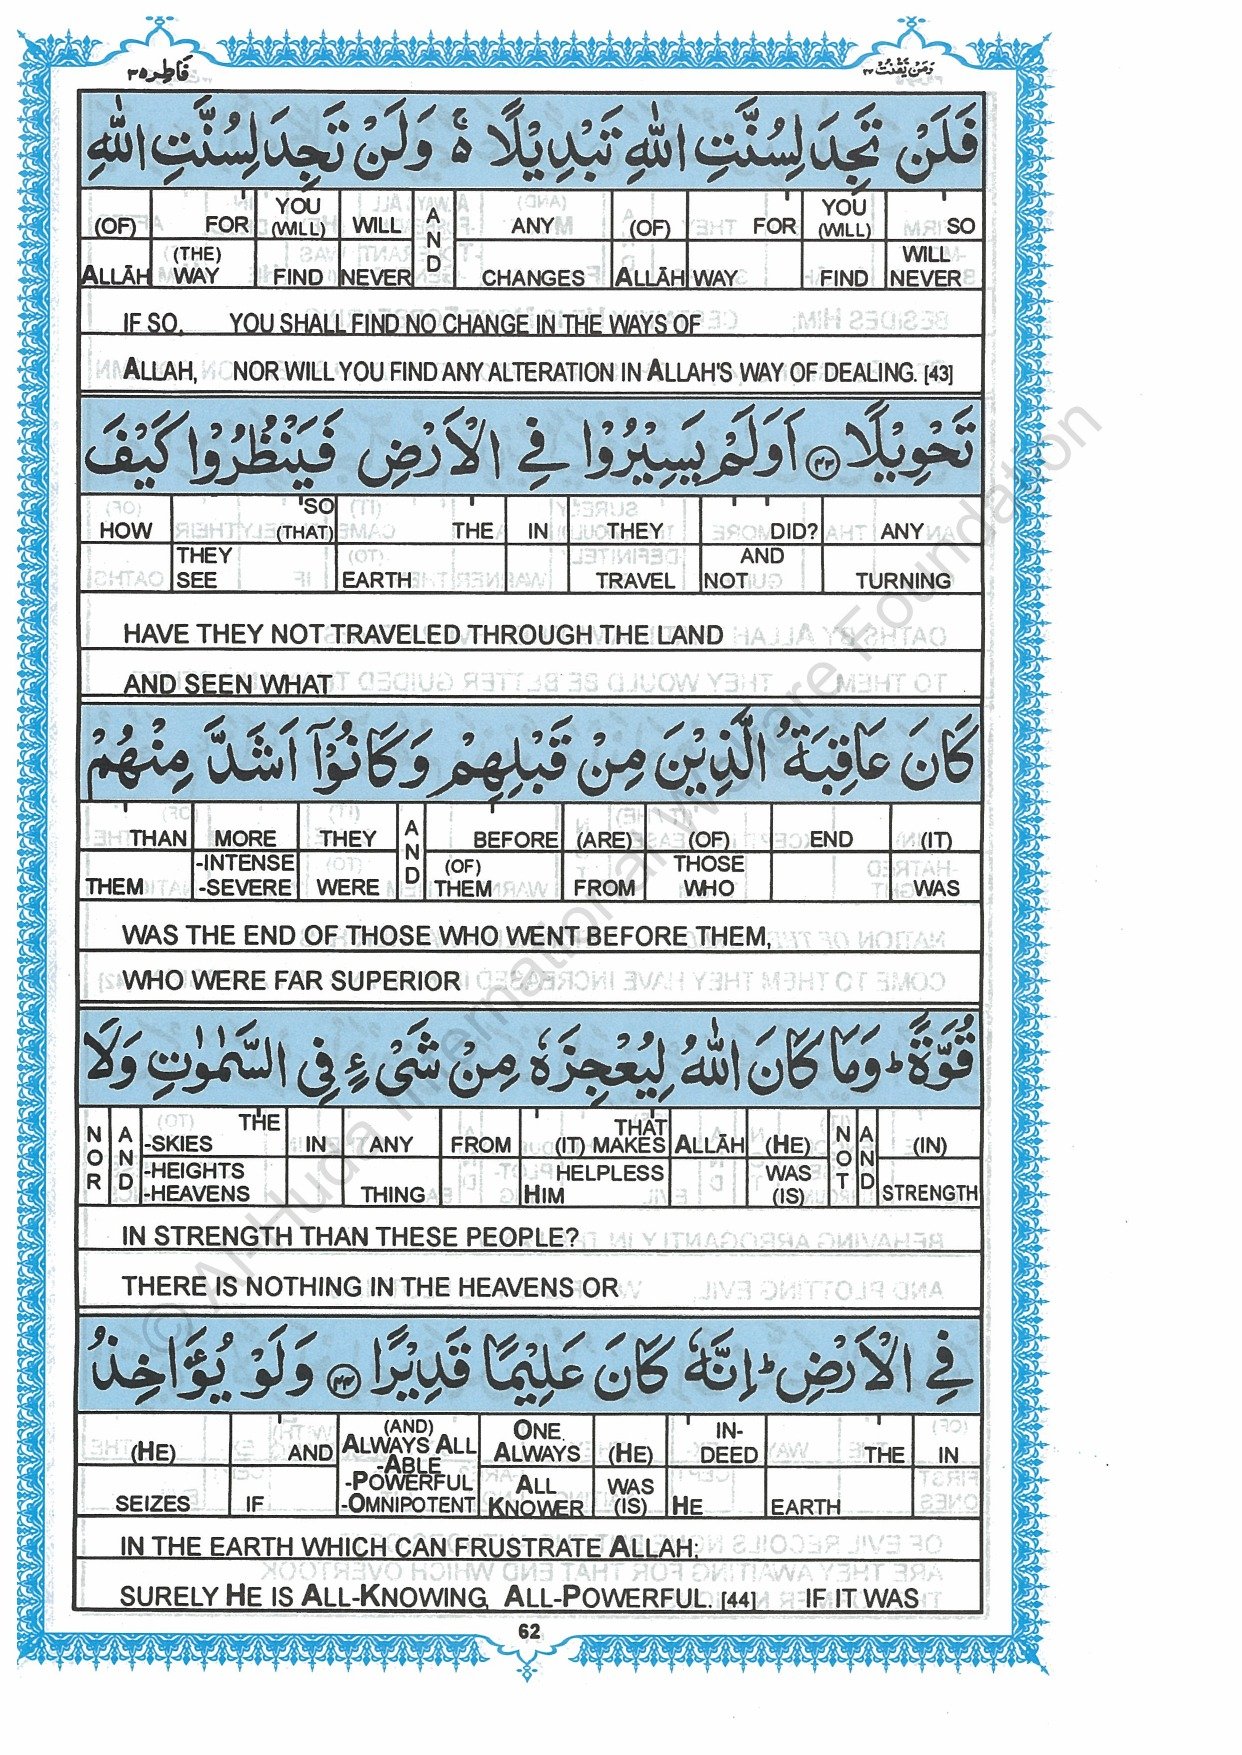 فَاطِر ٣٥
وَمَنْ يَّقْنُتْ ٢٢
فَلَنْ تَجِدَ لِسُنَّتِ اللّٰهِ تَبْدِيْلًا ۚ وَلَنْ تَجِدَ لِسُنَّتِ اللّٰهِ
(OF) FOR YOU (WILL) WILL AND ANY (OF) FOR YOU (WILL) SO
ALLĀH (THE) WAY FIND NEVER CHANGES ALLĀH WAY FIND WILL NEVER
IF SO, YOU SHALL FIND NO CHANGE IN THE WAYS OF
ALLAH, NOR WILL YOU FIND ANY ALTERATION IN ALLAH'S WAY OF DEALING. [43]
تَحْوِيْلًا ۴۳ اَوَلَمْ يَسِيْرُوْا فِي الْاَرْضِ فَيَنْظُرُوْا كَيْفَ
HOW SO (THAT) THE IN THEY DID? ANY
THEY SEE EARTH TRAVEL AND NOT TURNING
HAVE THEY NOT TRAVELED THROUGH THE LAND
AND SEEN WHAT
كَانَ عَاقِبَةُ الَّذِيْنَ مِنْ قَبْلِهِمْ وَكَانُوْٓا اَشَدَّ مِنْهُمْ
THAN MORE THEY AND BEFORE (ARE) (OF) END (IT)
THEM -INTENSE -SEVERE WERE (OF) THEM FROM THOSE WHO WAS
WAS THE END OF THOSE WHO WENT BEFORE THEM,
WHO WERE FAR SUPERIOR
قُوَّةً ؕ وَمَا كَانَ اللّٰهُ لِيُعْجِزَهٗ مِنْ شَيْءٍ فِي السَّمٰوٰتِ وَلَا
NOR AND THE -SKIES IN ANY FROM THAT (IT) MAKES ALLĀH (HE) NOT AND (IN)
-HEIGHTS -HEAVENS THING HELPLESS HIM WAS (IS) STRENGTH
IN STRENGTH THAN THESE PEOPLE?
THERE IS NOTHING IN THE HEAVENS OR
فِي الْاَرْضِ ؕ اِنَّهٗ كَانَ عَلِيْمًا قَدِيْرًا ۴۴ وَلَوْ يُؤَاخِذُ
(HE) AND (AND) ALWAYS ALL ONE ALWAYS (HE) IN-DEED THE IN
SEIZES IF -ABLE -POWERFUL -OMNIPOTENT ALL KNOWER WAS (IS) HE EARTH
IN THE EARTH WHICH CAN FRUSTRATE ALLAH;
SURELY HE IS ALL-KNOWING, ALL-POWERFUL. [44] IF IT WAS
62
© Al-Huda International Welfare Foundation